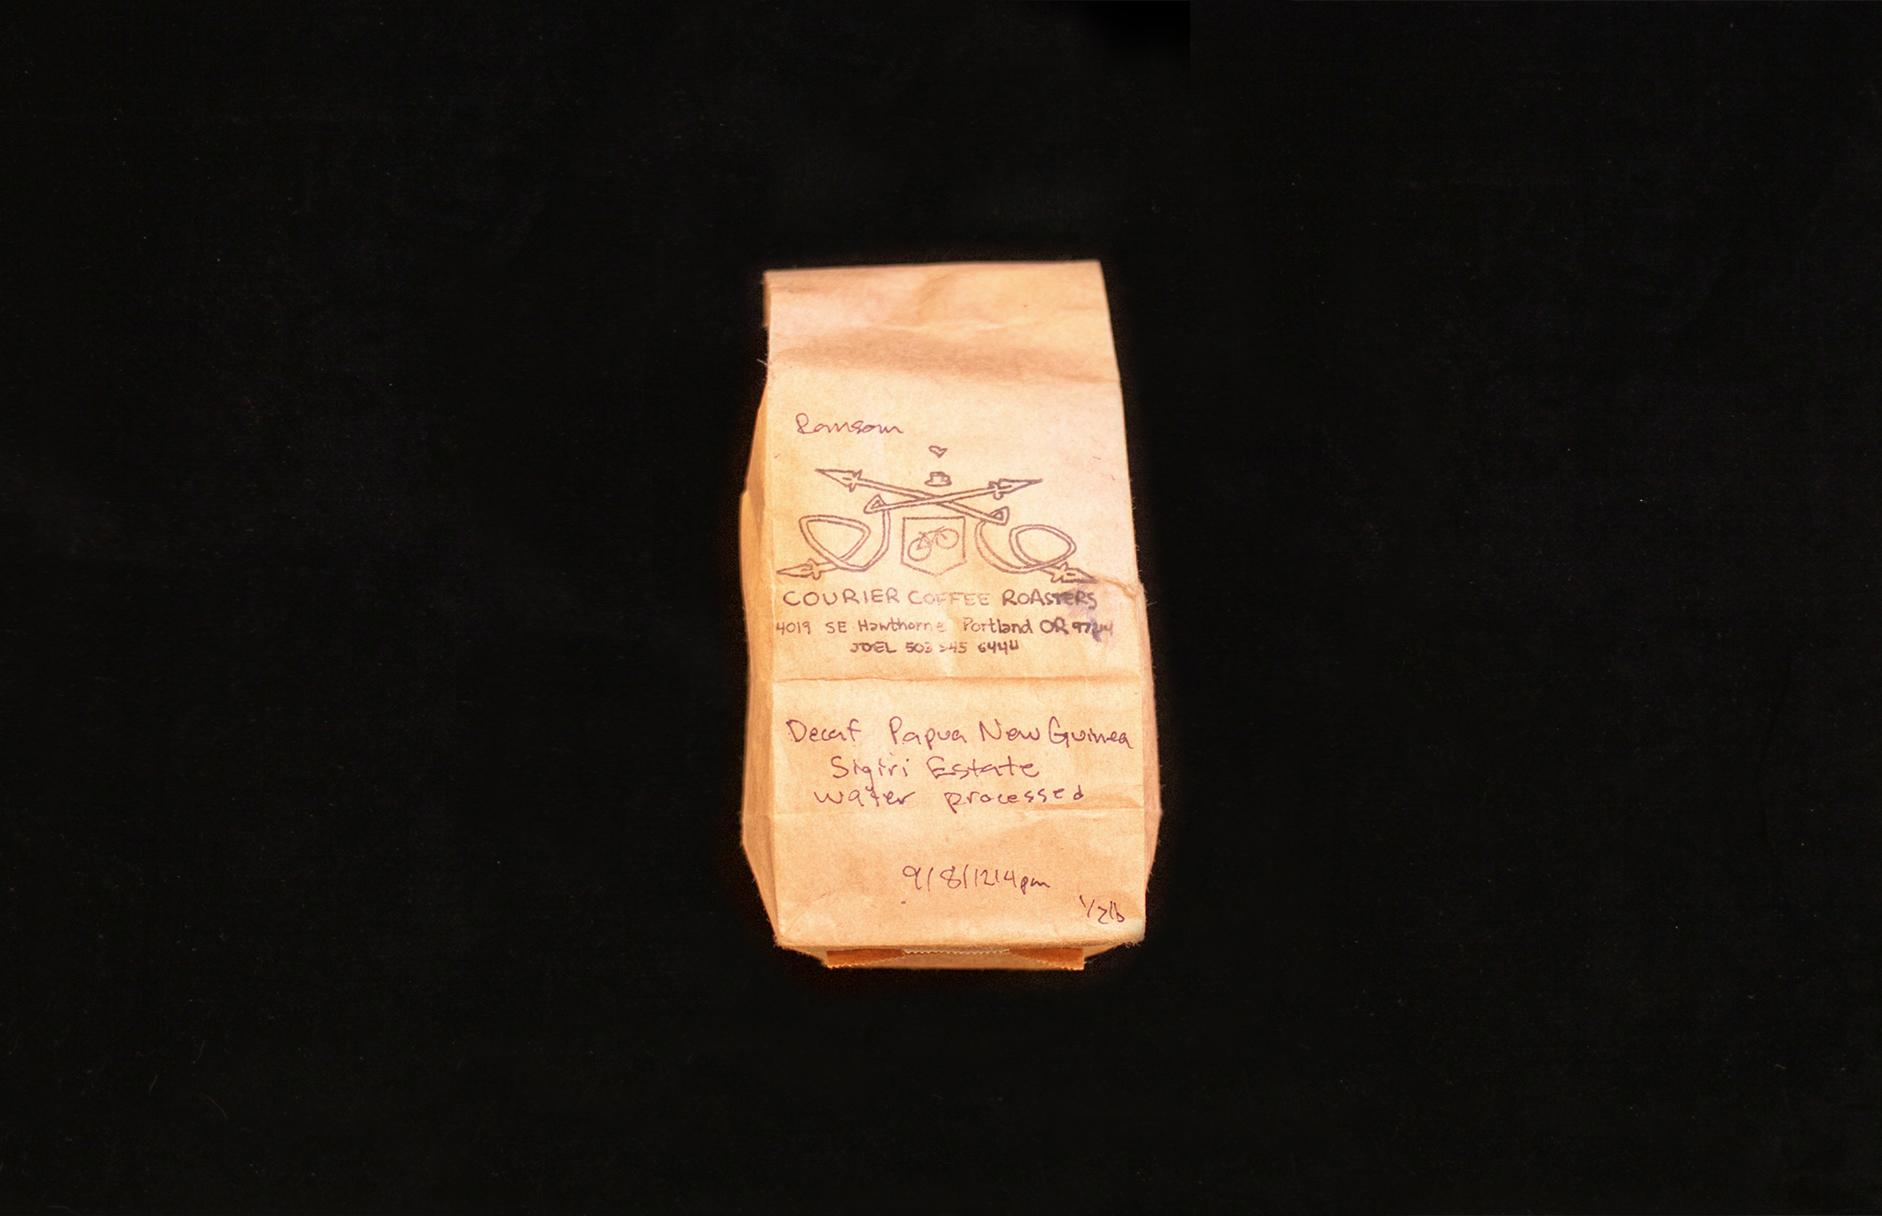 Ransom
COURIER COFFEE ROASTERS
4019 SE Hawthorne Portland OR
JOEL 503 545 6444
Decaf Papua New Guinea
Sigiri Estate
water processed
9/8/12 14pm
1/2lb